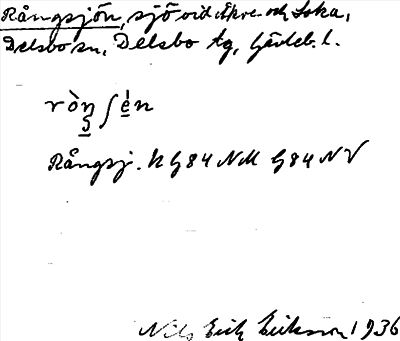 Rångsjön, sjö vid Åkre och Loka,
Delsbo sn, Delsbo tg, Gävleb. l.
ròŋ ʃɛ́n
Rångsj. K G84 NM G84 NV
Nils Erik Eriksson 1936